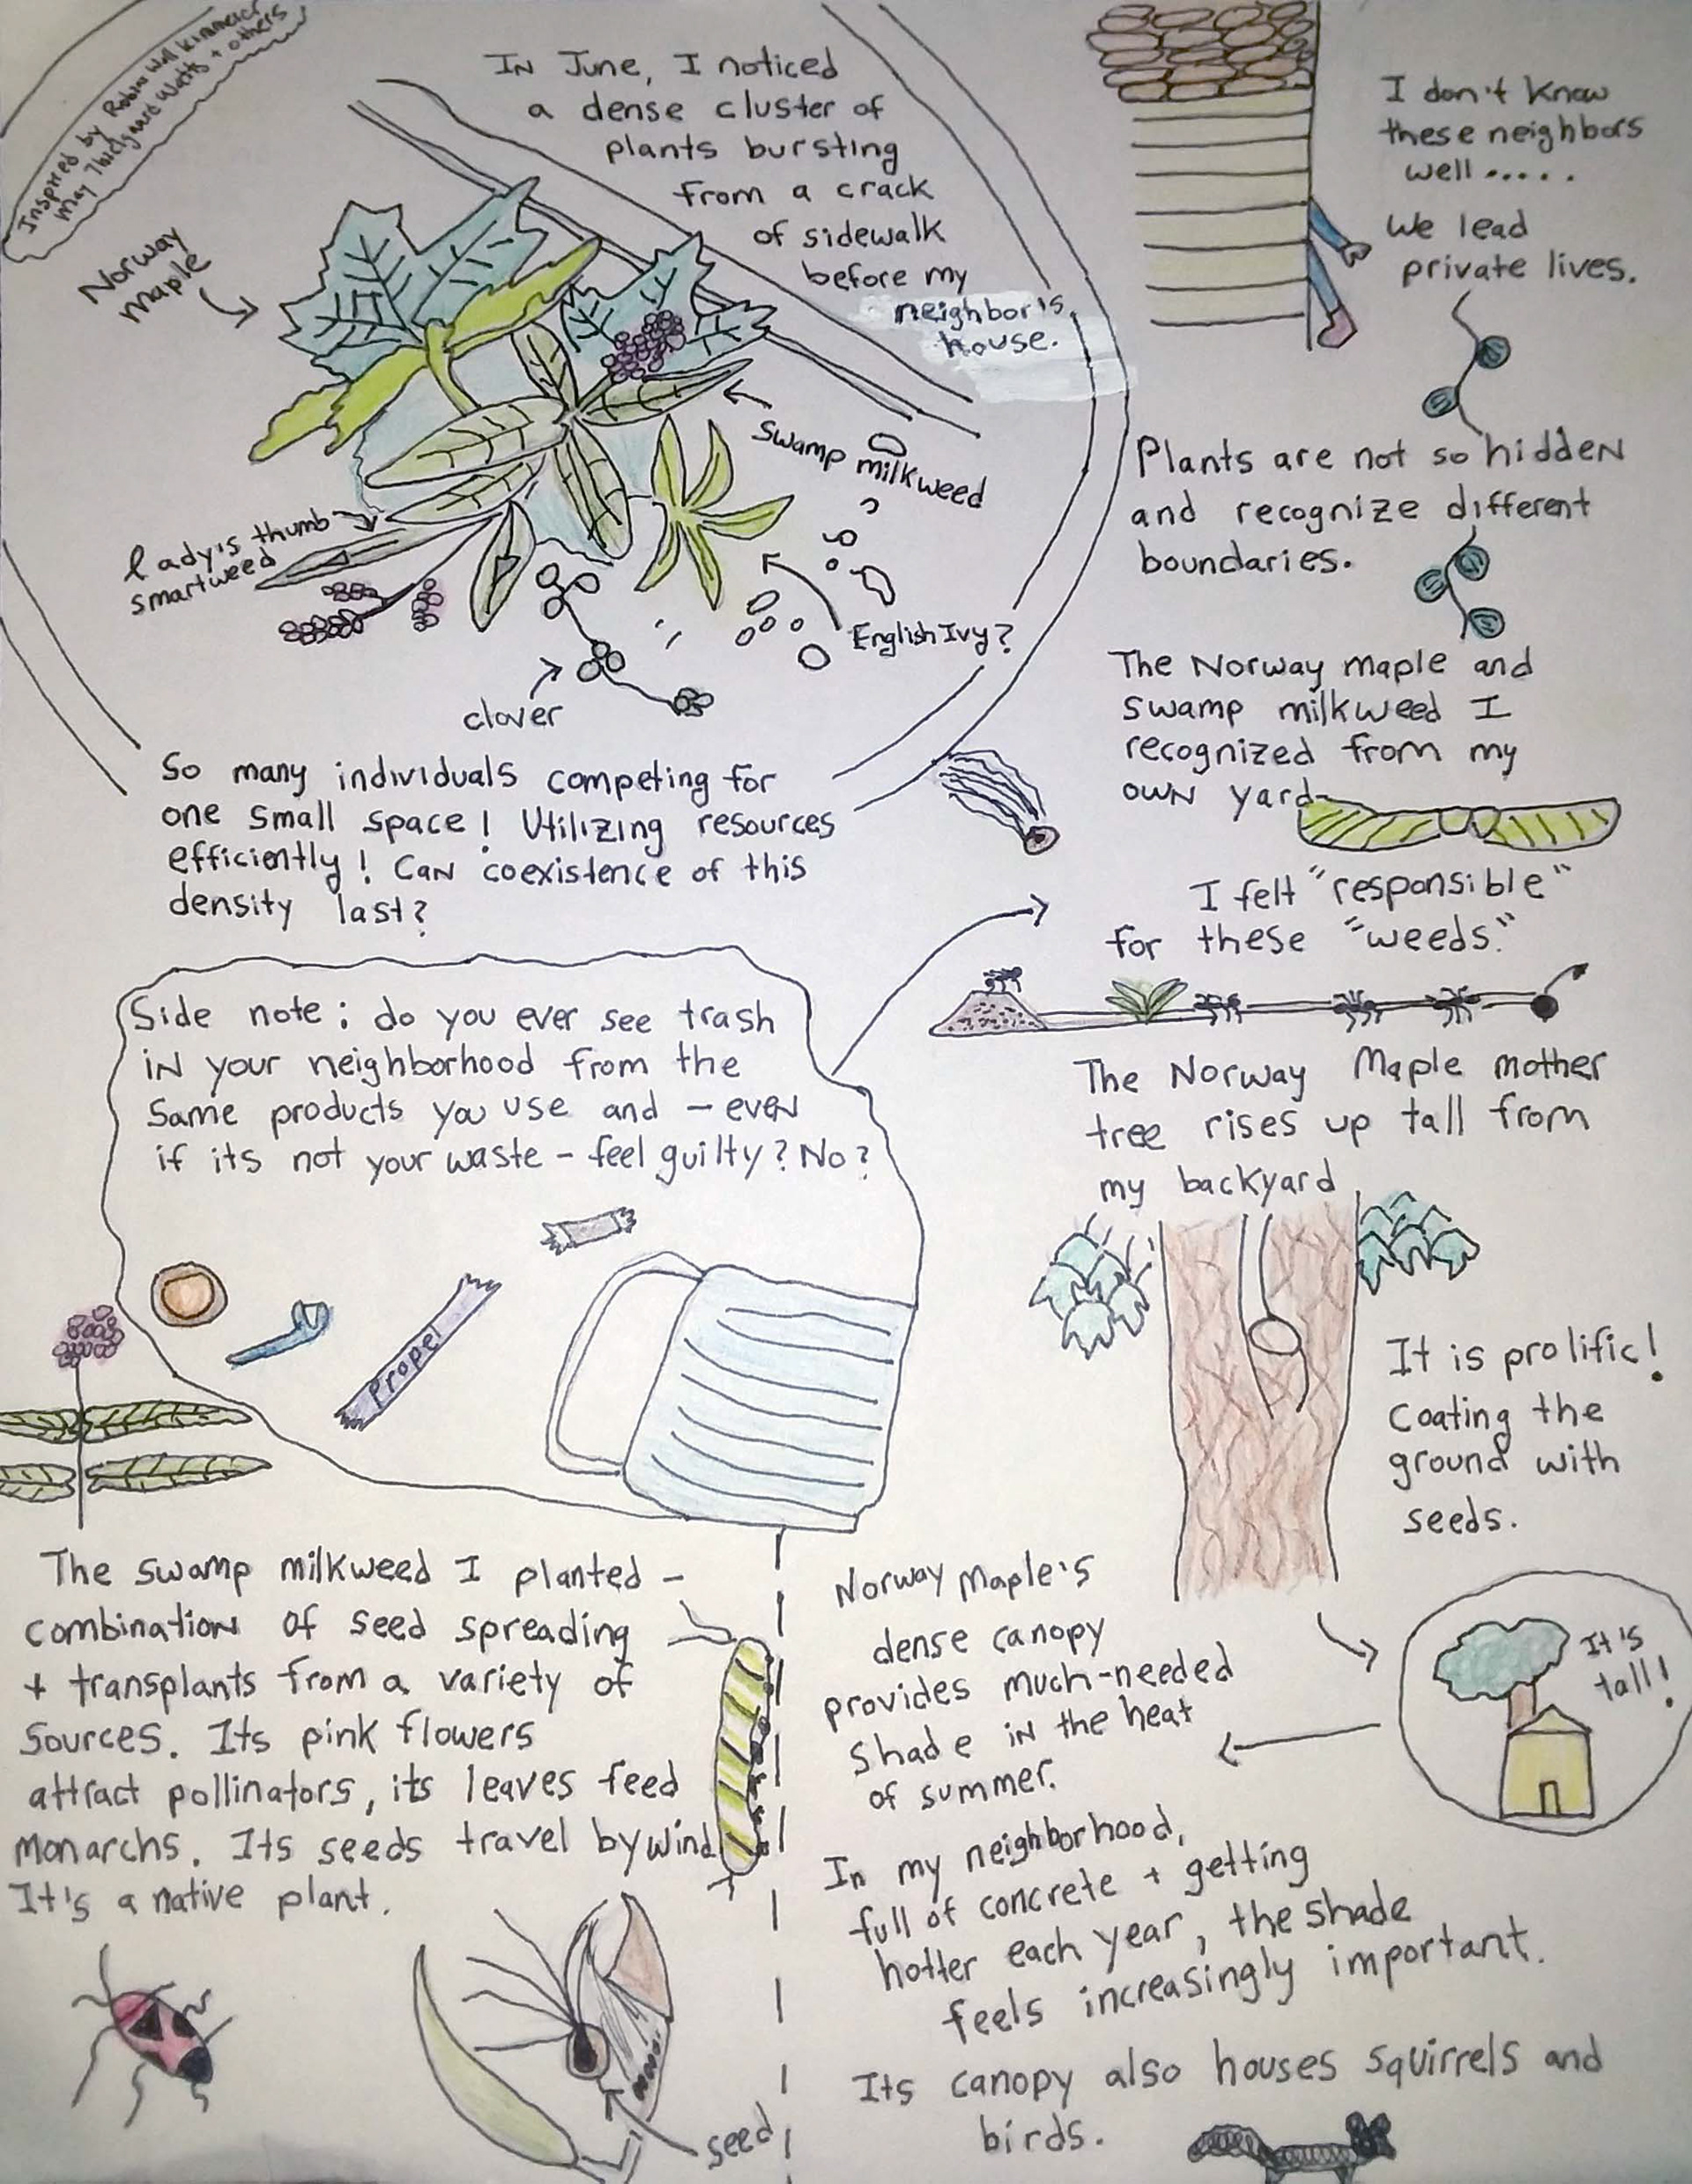 Inspired by Robin Wall Kimmerer
May Thielgaard Watts + others
In June, I noticed
a dense cluster of
plants bursting
from a crack
of sidewalk
before my
neighbor's
house.
Norway
maple
Swamp milkweed
lady's thumb
smartweed
English Ivy?
clover
So many individuals competing for
one small space! Utilizing resources
efficiently! Can coexistence of this
density last?
I don't know
these neighbors
well.....
We lead
private lives.
Plants are not so hidden
and recognize different
boundaries.
The Norway maple and
swamp milkweed I
recognized from my
own yard
I felt "responsible"
for these "weeds."
Side note: do you ever see trash
in your neighborhood from the
same products you use and - even
if its not your waste - feel guilty? No?
Propel
The Norway Maple mother
tree rises up tall from
my backyard
It is prolific!
Coating the
ground with
seeds.
It's
tall!
The swamp milkweed I planted -
combination of seed spreading
+ transplants from a variety of
sources. Its pink flowers
attract pollinators, its leaves feed
monarchs. Its seeds travel by wind
It's a native plant.
seed
Norway Maple's
dense canopy
provides much-needed
shade in the heat
of summer.
In my neighborhood,
full of concrete + getting
hotter each year, the shade
feels increasingly important.
Its canopy also houses squirrels and
birds.